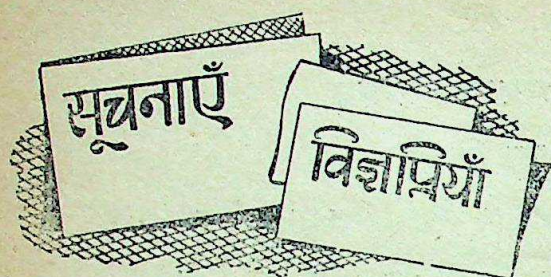 सूचनाएँ
विज्ञप्तियाँ